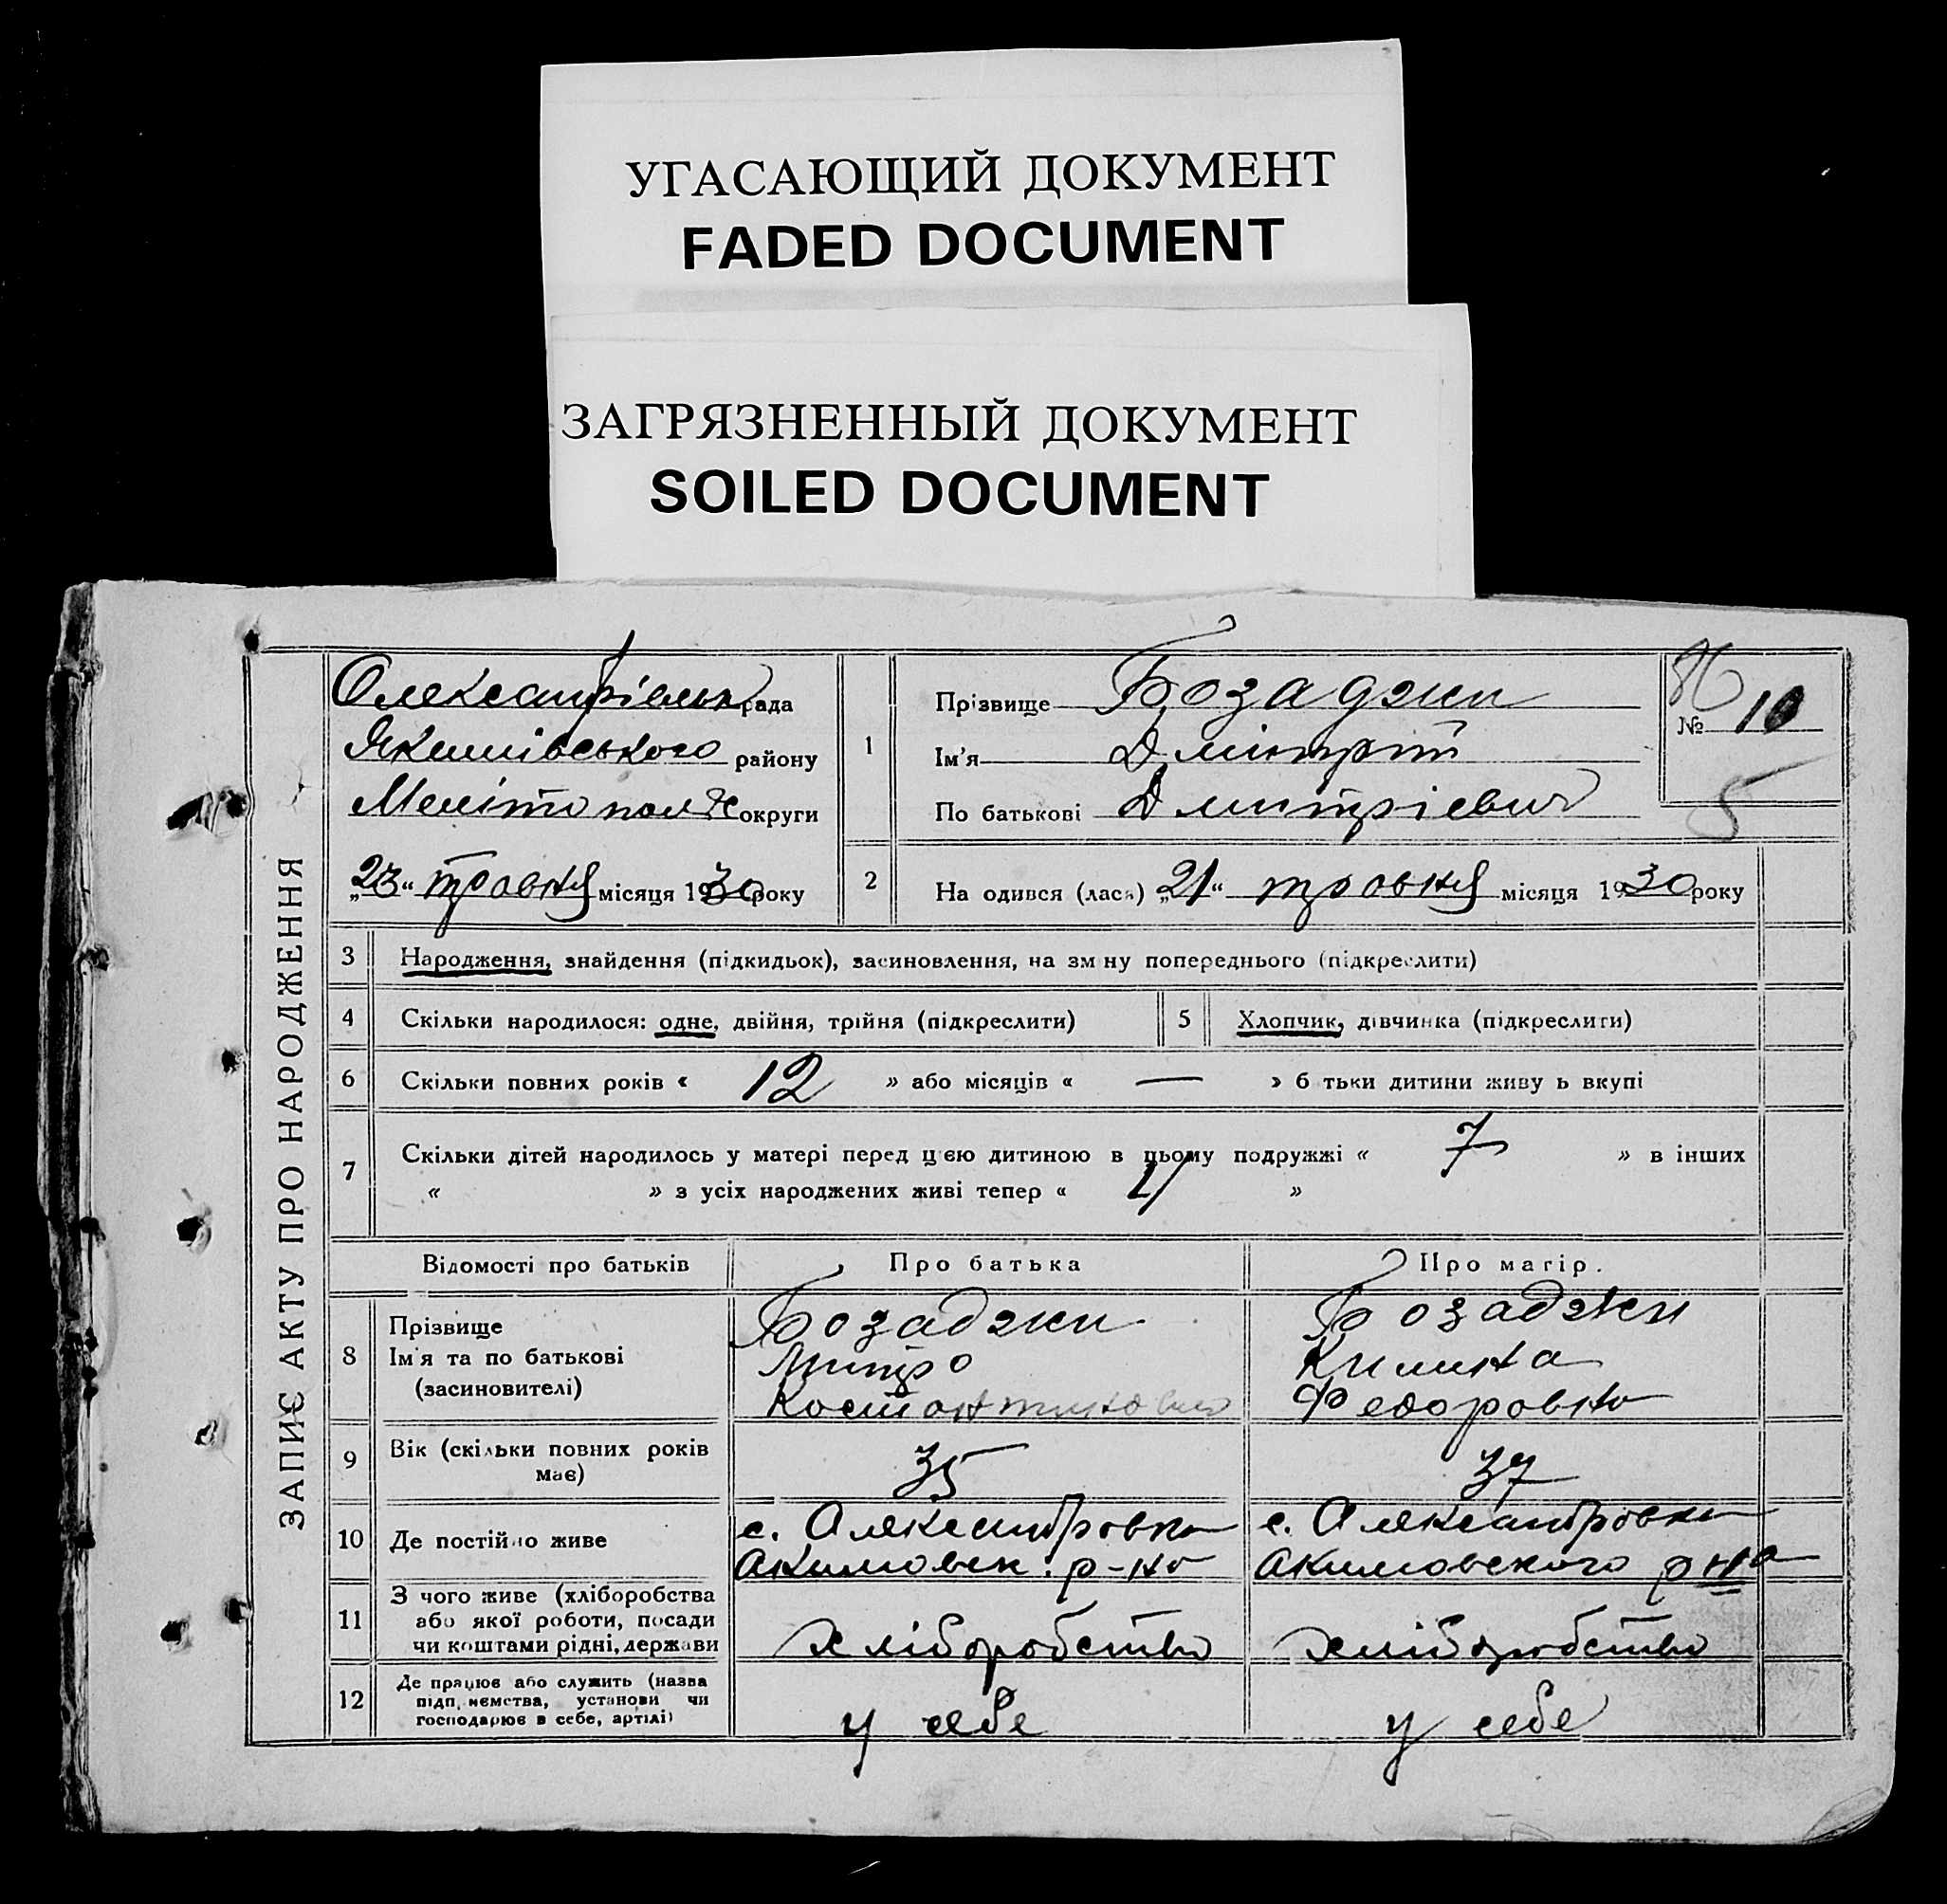 УГАСАЮЩИЙ ДОКУМЕНТ
FADED DOCUMENT
ЗАГРЯЗНЕННЫЙ ДОКУМЕНТ
SOILED DOCUMENT
ЗАПИС АКТУ ПРО НАРОДЖЕННЯ
рада
Якимівського району
округи
„23“ травня місяця 1930 року
1
Прізвище Бозаджи
Ім'я Дмитрій
По батькові Дмитрієвич
№ 10
5
2
На одився (лася) „21“ травня місяця 1930 року
3 Народження, знайдення (підкидьок), засиновлення, на зм ну попереднього (підкреслити)
4 Скільки народилося: одне, двійня, трійня (підкреслити)
5 Хлопчик, дівчинка (підкреслити)
6 Скільки повних років « 12 » або місяців « — » б тьки дитини живу ь вкупі
7 Скільки дітей народилось у матері перед цією дитиною в цьому подружжі « 7 » в інших
« » з усіх народжених живі тепер « »
Відомості про батьків Про батька Про матір.
8
Прізвище Бозаджи Бозаджи
Ім'я та по батькові Митро Килина
(засиновителі) Костантинович Федоровна
9 Вік (скільки повних років має) 35 37
10 Де постійно живе
с. Александровка с. Александровка
Акимовск. р-на Акимовского р-на
11 З чого живе (хліборобства
або якої роботи, посади
чи коштами рідні, держави
хліборобство хліборобство
12 Де працює або служить (назва
підп иємства, установи чи
господарює в себе, артілі)
у себе у себе